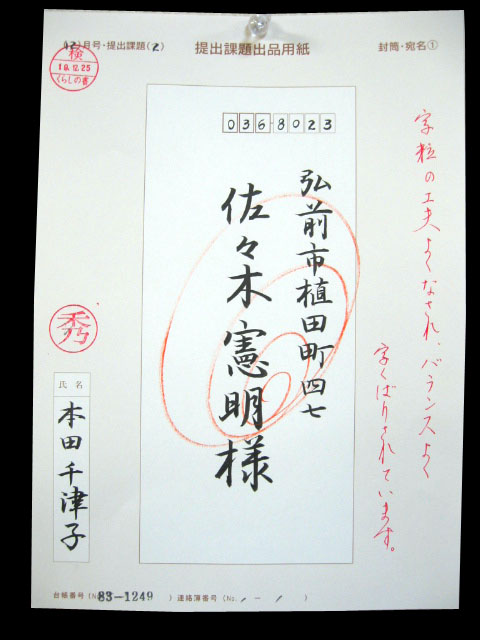 12月号・提出課題(2)
提出課題出品用紙
封筒・宛名①
検
18.12.25
くらしの書
036-8023
弘前市植田町四七
佐々木憲明様
字粒の工夫よくなされ、バランスよく
字くばりされています。
秀
氏名
本田千津子
台帳番号(No.83-1249)連絡簿番号(No. - )